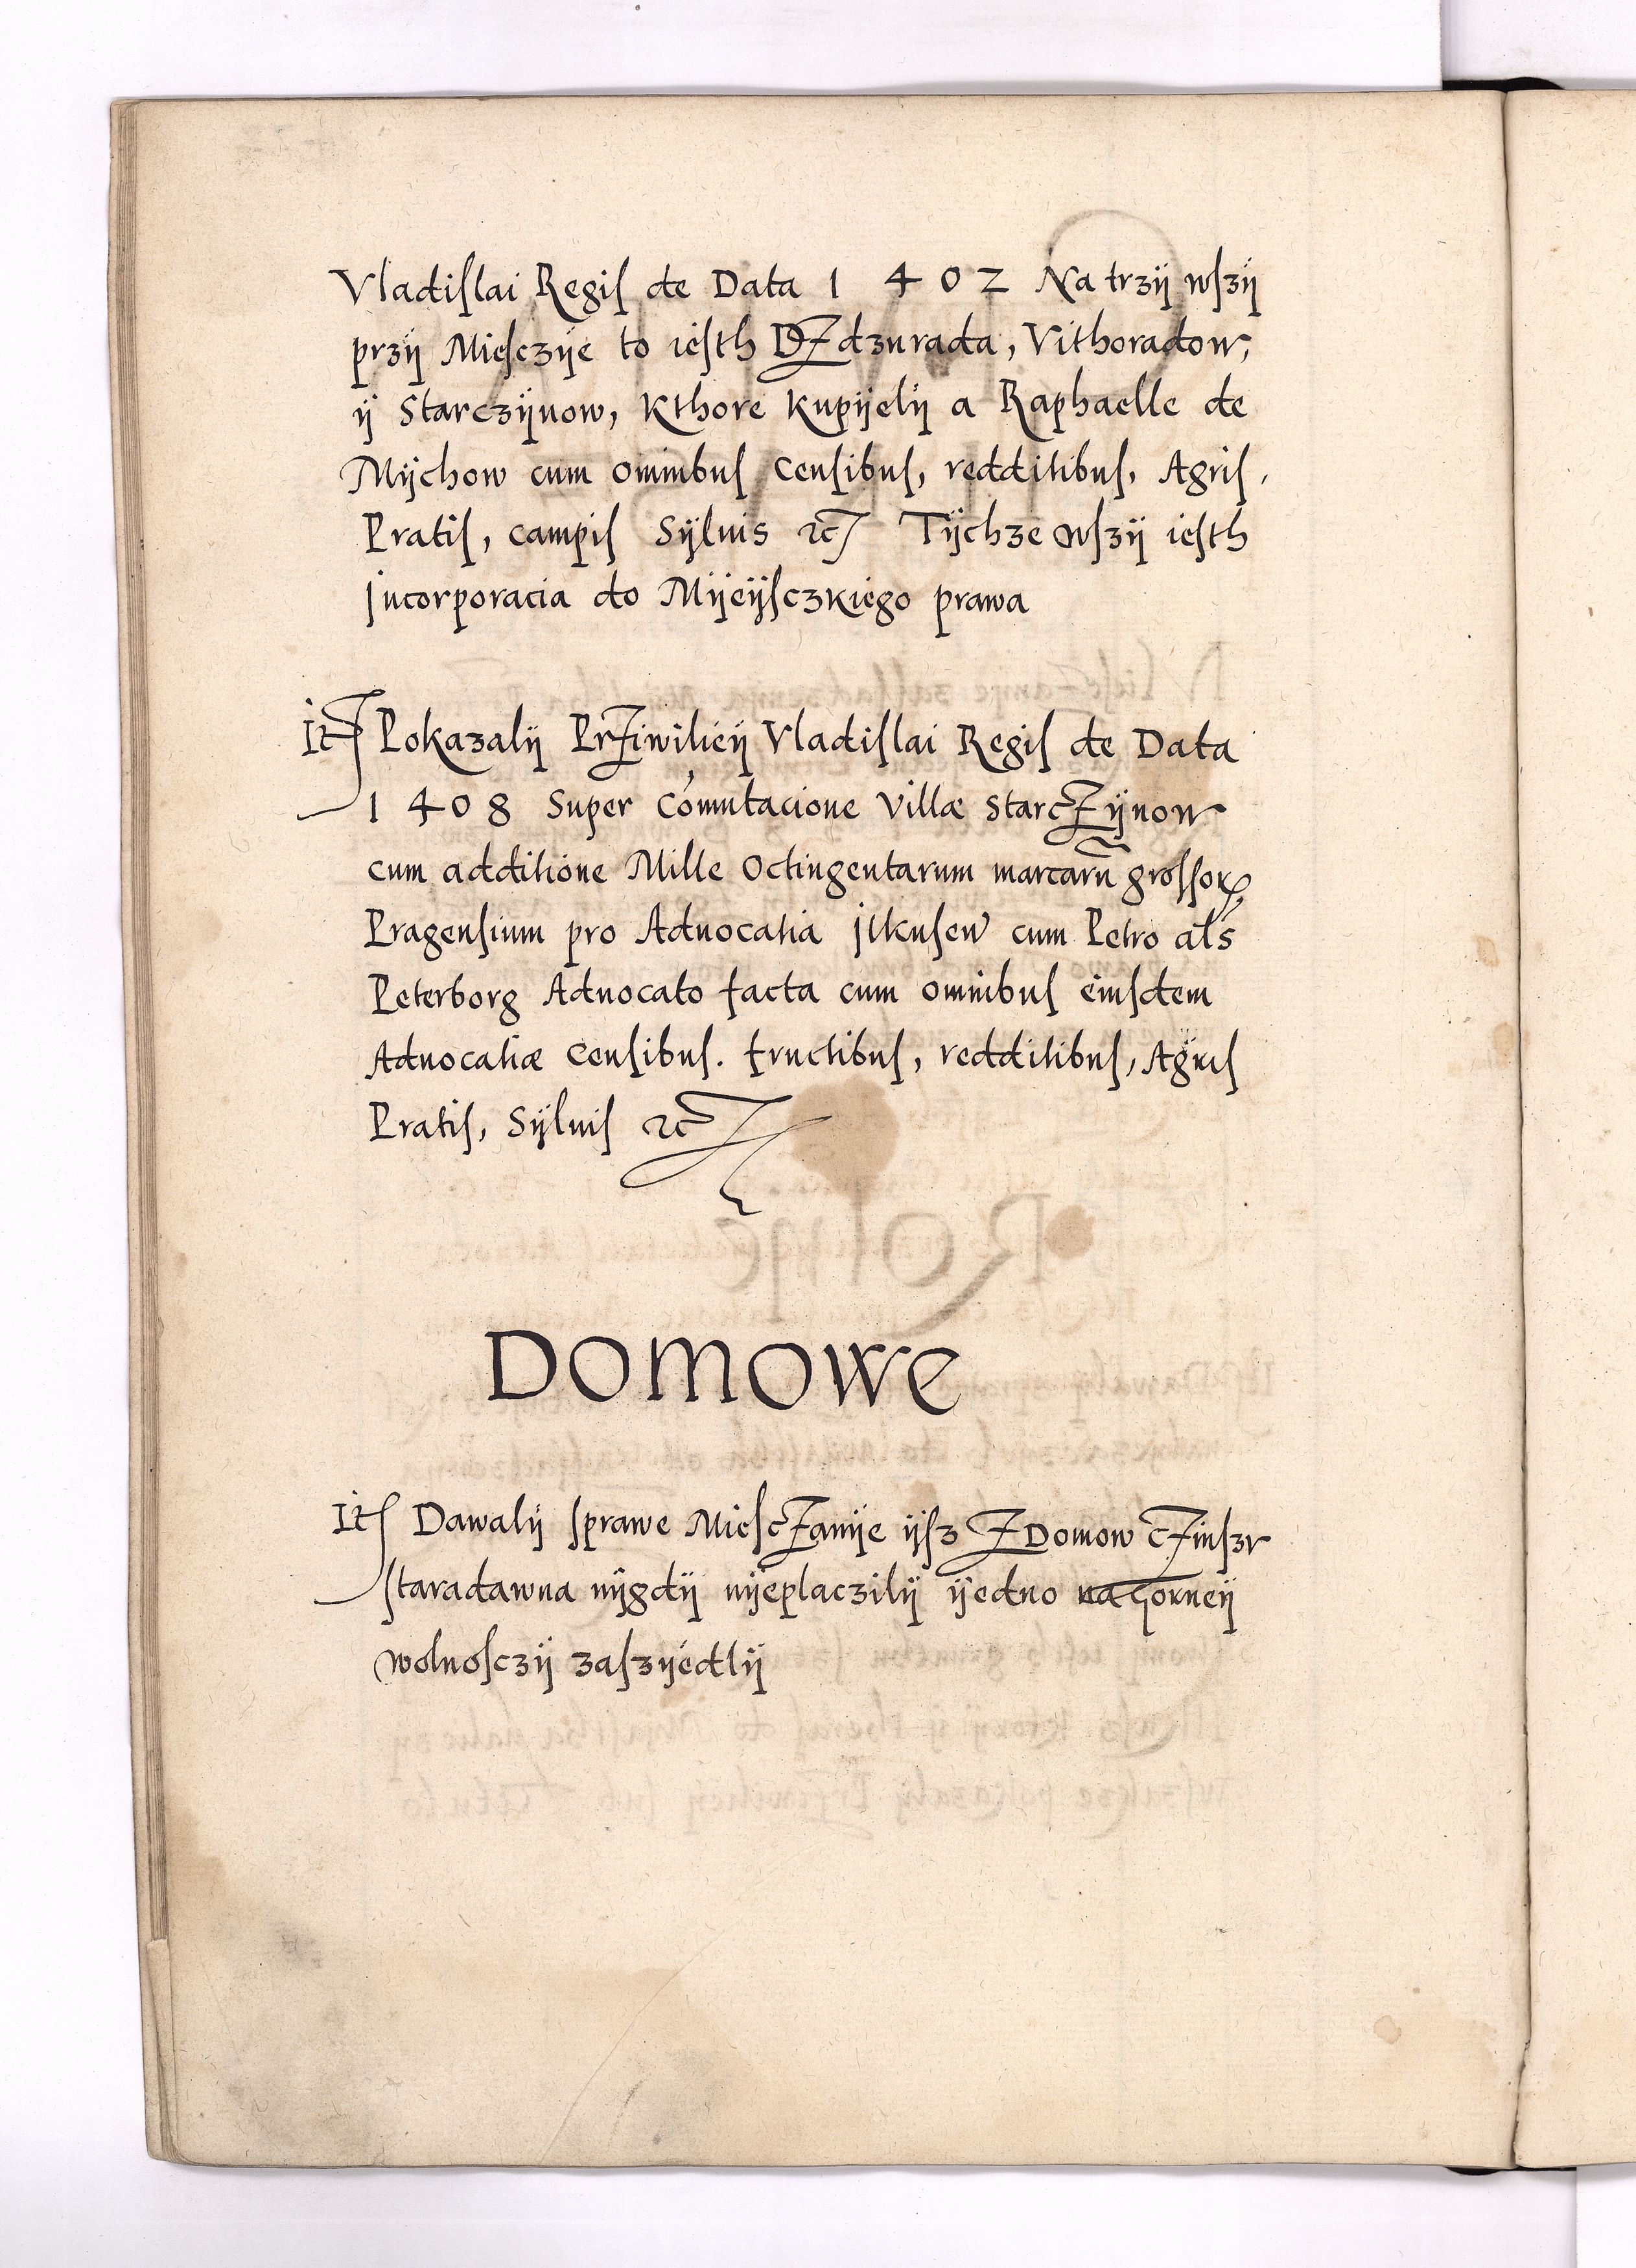 Vladiſlai Regiſ de Data 1 4 0 2 Na trzÿ wſzÿ
przÿ Mieſczÿe to ieſth DZdzurada, Vithoradow,
ÿ Starczÿnow, Kthore Kupÿelÿ a Raphaelle de
Mÿchow cum omnibuſ Cenſibuſ, redditibuſ, Agriſ,
Pratiſ, campiſ Sÿluis ꝛc Tÿchze wſzÿ ieſth
jncorporacia do Mÿeÿſczkiego prawa
It Pokazalÿ PrZiwilieÿ Vladiſlai Regiſ de Data
1 4 0 8 Super Com̄utacione Villæ StarcZÿnow
cum additione Mille Octingentarum marcarū groſſoꝝ
Pragenſium pro Aduocatia jlkuſeń cum Petro alś
Peterborg Aduocato facta cum omnibuſ eiuſdem
Aduocatiæ Cenſibuſ. fructibuſ, redditibuſ, Agriſ
Pratiſ, Sÿluiſ ꝛc
Domowe
It Dawalÿ ſprawe MieſcZanÿe ÿſz Z Domow cZinſzv
ſtaradawna nÿgdÿ nÿeplaczilÿ ÿedno na Gorneÿ
wolnoſczÿ zaſzÿedlÿ